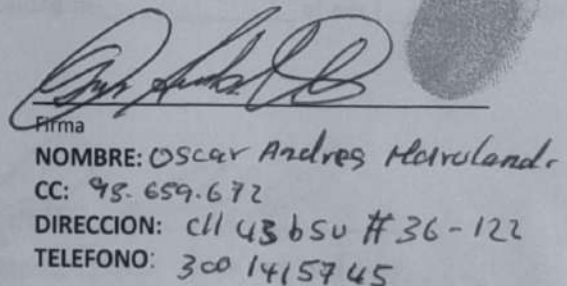 Firma
NOMBRE: Oscar Andres Maruland.
CC: 98.659.672
DIRECCION: Cll 43 b SU # 36-122
TELEFONO: 300 1415745